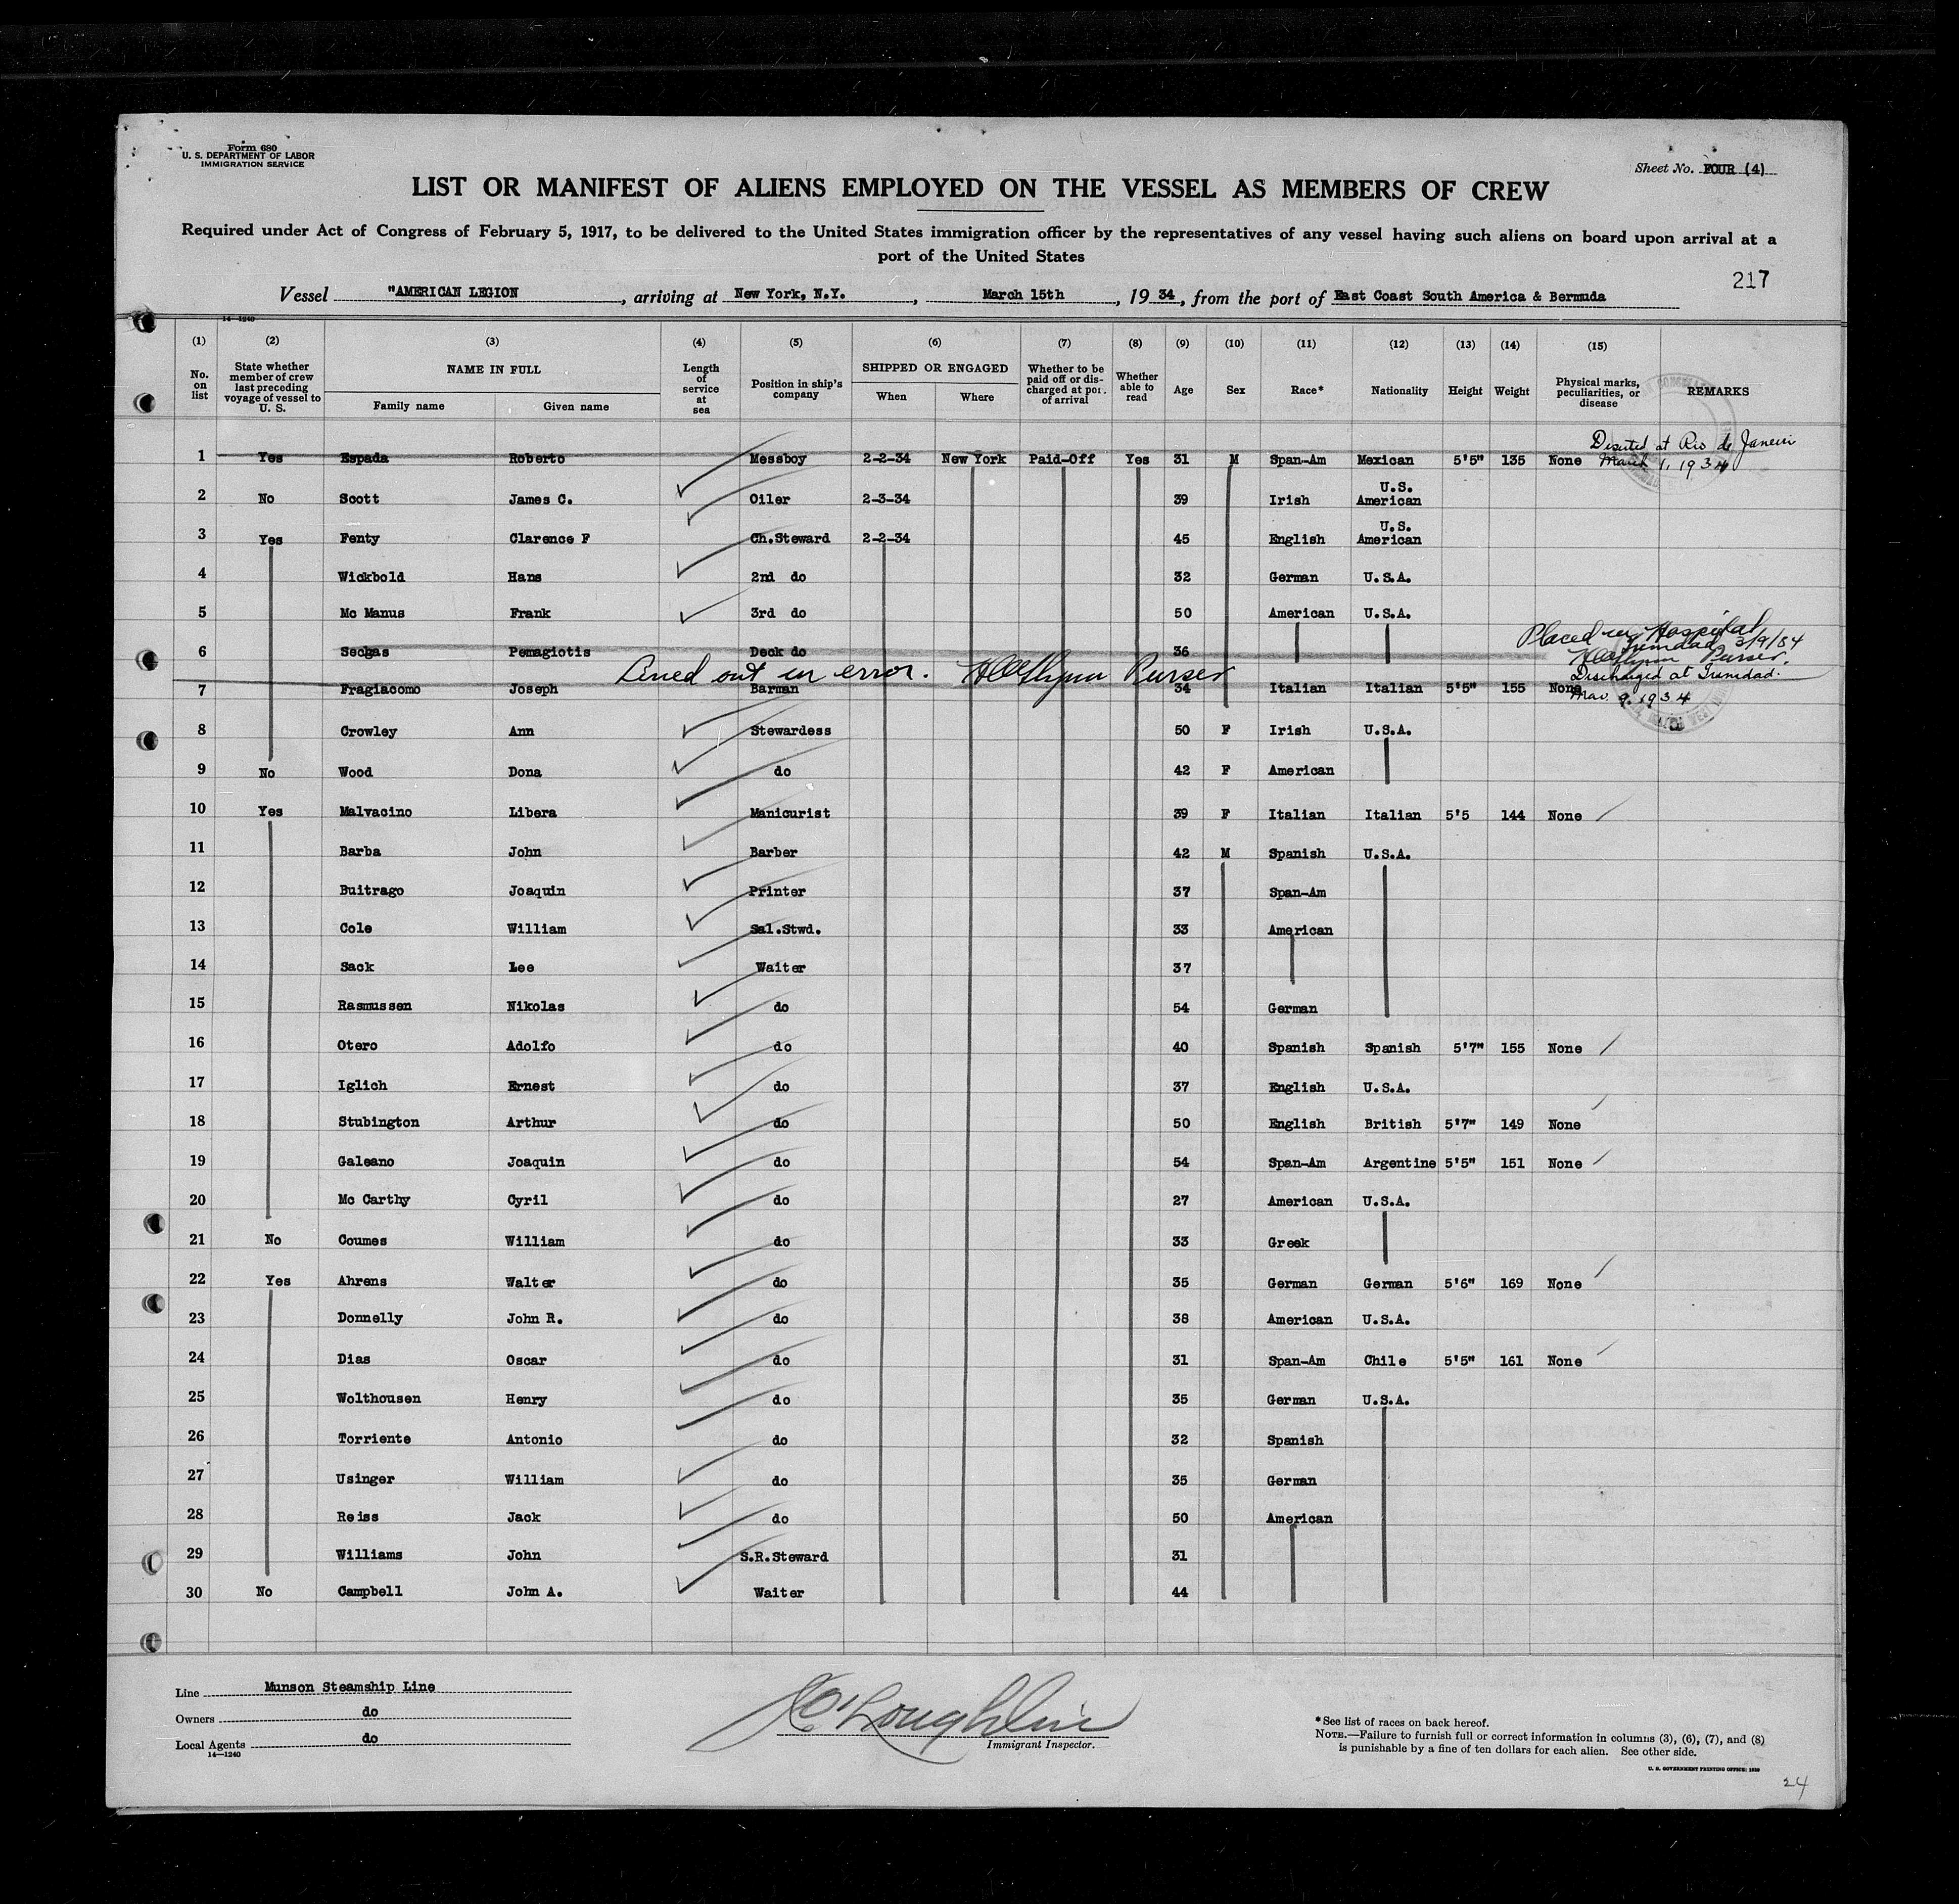 Form 680
U. S. DEPARTMENT OF LABOR
IMMIGRATION SERVICE
Sheet No. FOUR (4)
LIST OR MANIFEST OF ALIENS EMPLOYED ON THE VESSEL AS MEMBERS OF CREW
Required under Act of Congress of February 5, 1917, to be delivered to the United States immigration officer by the representatives of any vessel having such aliens on board upon arrival at a
port of the United States
217
Vessel "AMERICAN LEGION, arriving at New York, N.Y., March 15th, 1934, from the port of East Coast South America & Bermuda
14—1240
(1) (2) (3) (4) (5) (6) (7) (8) (9) (10) (11) (12) (13) (14) (15)
No. on list
State whether member of crew last preceding voyage of vessel to U. S.
NAME IN FULL
Family name Given name
Length of service at sea
Position in ship's company
SHIPPED OR ENGAGED
When Where
Whether to be paid off or discharged at port of arrival
Whether able to read
Age Sex Race* Nationality Height Weight
Physical marks, peculiarities, or disease
REMARKS
Deserted at Rio de Janeiro
1 Yes Espada Roberto Messboy 2-2-34 New York Paid-Off Yes 31 M Span-Am Mexican 5'5" 135 None March 1, 1934
2 No Scott James C. Oiler 2-3-34 39 Irish U.S. American
3 Yes Fenty Clarence F Ch.Steward 2-2-34 45 English U.S. American
4 Wickbold Hans 2nd do 32 German U.S.A.
5 Mc Manus Frank 3rd do 50 American U.S.A.
Placed in Hospital
Trinidad 3/9/34
6 Sechas Pemagiotis Deck do 36
Purser.
Lined out in error. Purser
Discharged at Trinidad.
7 Fragiacomo Joseph Barman 34 Italian Italian 5'5" 155 None
Mar. 9, 1934
8 Crowley Ann Stewardess 50 F Irish U.S.A.
9 No Wood Dona do 42 F American
10 Yes Malvacino Libera Manicurist 39 F Italian Italian 5'5 144 None
11 Barba John Barber 42 M Spanish U.S.A.
12 Buitrago Joaquin Printer 37 Span-Am
13 Cole William Sal.Stwd. 33 American
14 Sack Lee Waiter 37
15 Rasmussen Nikolas do 54 German
16 Otero Adolfo do 40 Spanish Spanish 5'7" 155 None
17 Iglich Ernest do 37 English U.S.A.
18 Stubington Arthur do 50 English British 5'7" 149 None
19 Galeano Joaquin do 54 Span-Am Argentine 5'5" 151 None
20 Mc Carthy Cyril do 27 American U.S.A.
21 No Coumes William do 33 Greek
22 Yes Ahrens Walter do 35 German German 5'6" 169 None
23 Donnelly John R. do 38 American U.S.A.
24 Dias Oscar do 31 Span-Am Chile 5'5" 161 None
25 Wolthousen Henry do 35 German U.S.A.
26 Torriente Antonio do 32 Spanish
27 Usinger William do 35 German
28 Reiss Jack do 50 American
29 Williams John S.R.Steward 31
30 No Campbell John A. Waiter 44
Line Munson Steamship Line
Owners do
Local Agents do
14—1240
Immigrant Inspector.
*See list of races on back hereof.
NOTE.—Failure to furnish full or correct information in columns (3), (6), (7), and (8)
is punishable by a fine of ten dollars for each alien. See other side.
U. S. GOVERNMENT PRINTING OFFICE:
24